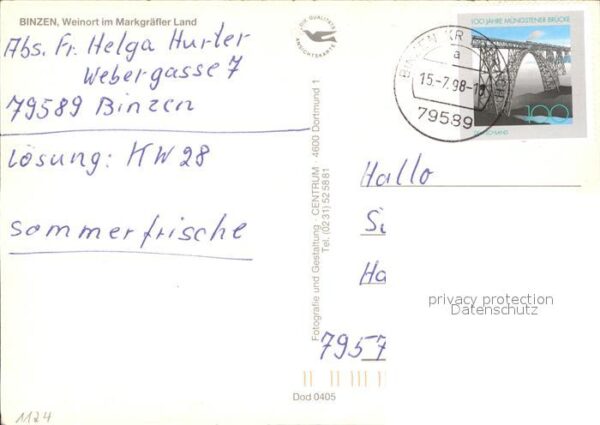 BINZEN, Weinort im Markgräfler Land
Abs. Fr. Helga Hurter
Webergasse 7
79589 Binzen
Lösung: KW 28
Sommerfrische
DIE QUALITÄTS
ANSICHTSKARTE
Fotografie und Gestaltung · CENTRUM · 4600 Dortmund 1
Tel. (0231) 525881
100 JAHRE MÜNGSTENER BRÜCKE
100
DEUTSCHLAND
BINZEN, KR
a
15.-7.98-
79589
Hallo
Ha
7957
privacy protection
Datenschutz
Dod 0405
1124